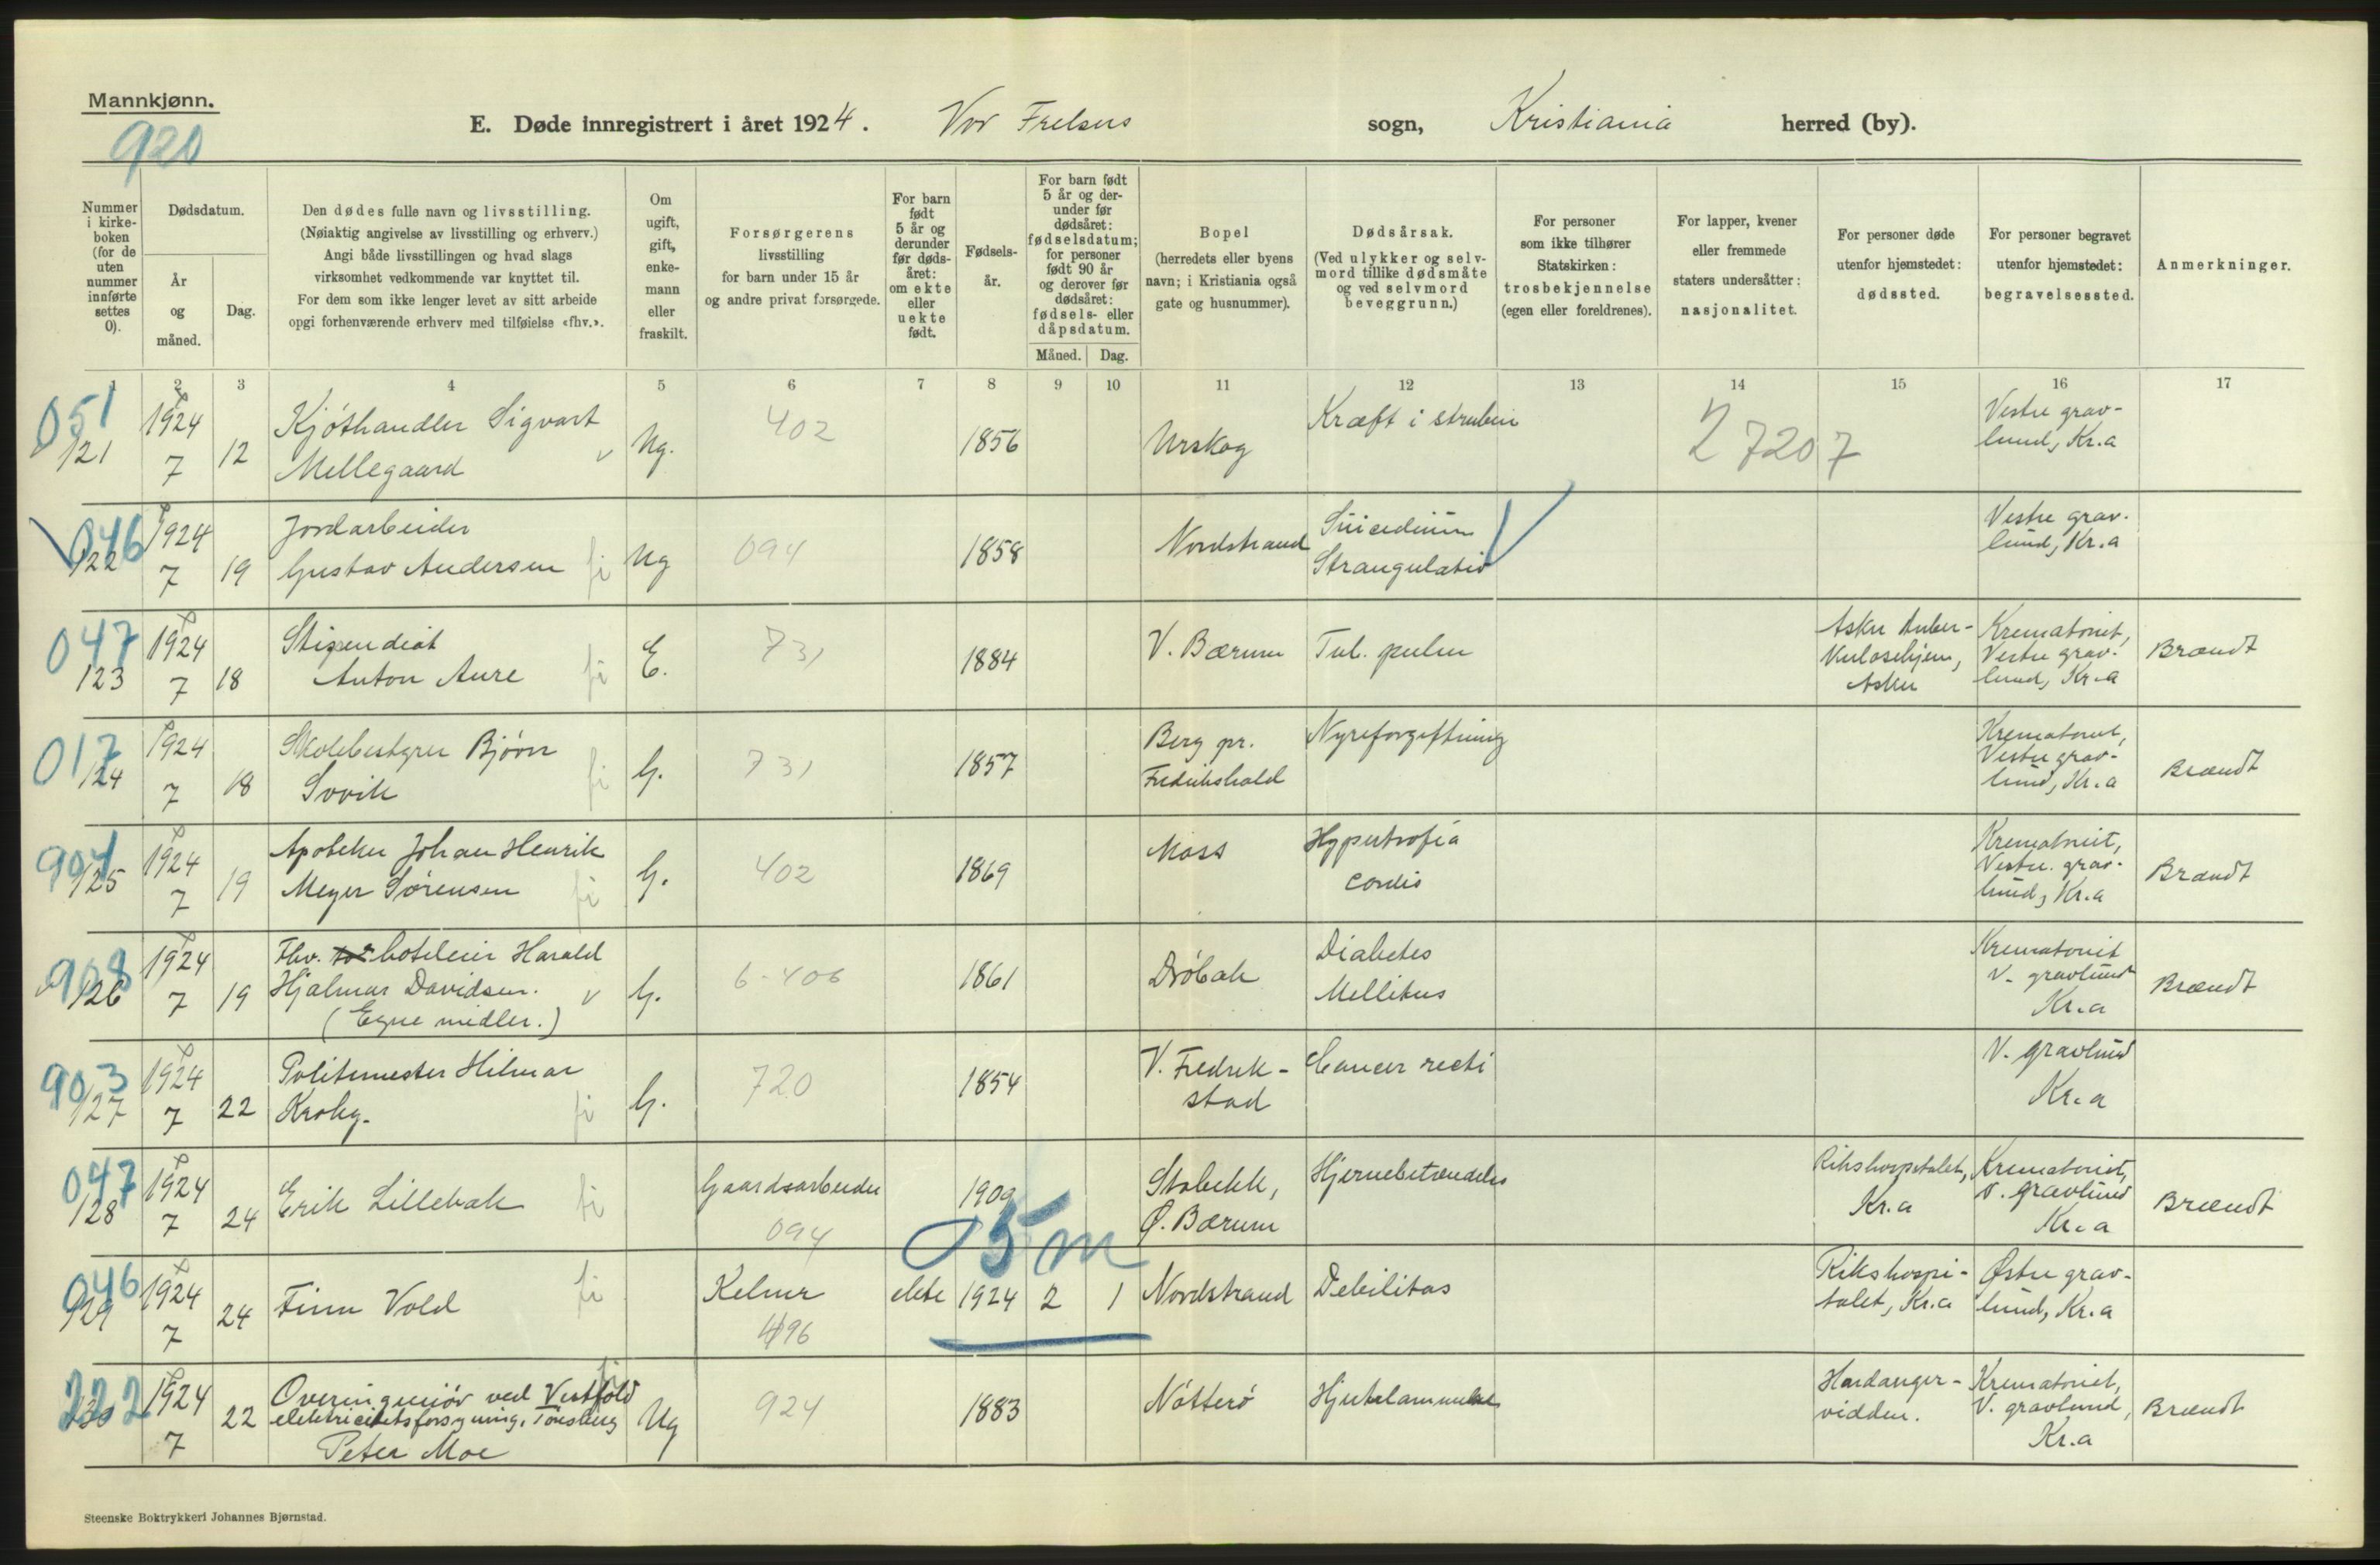 Mannkjønn.
920
E. Døde innregistrert i året 1924. Vor Frelsers sogn, Kristiania herred (by).
Nummer i kirke- boken (for de uten nummer innførte settes 0).
Dødsdatum.
År og måned.
Dag.
Den dødes fulle navn og livsstilling.
(Nøiaktig angivelse av livsstilling og erhverv.)
Angi både livsstillingen og hvad slags
virksomhet vedkommende var knyttet til.
For dem som ikke lenger levet av sitt arbeide
opgi forhenværende erhverv med tilføielse «fhv.».
Om ugift, gift, enke- mann eller fraskilt.
Forsørgerens
livsstilling
for barn under 15 år
og andre privat forsørgede.
For barn født 5 år og derunder før døds- året: om ekte eller uekte født.
Fødsels- år.
For barn født 5 år og der- under før dødsåret: fødselsdatum; for personer født 90 år og derover før dødsåret: fødsels- eller dåpsdatum.
Måned. Dag.
Bopel
(herredets eller byens
navn; i Kristiania også
gate og husnummer).
Dødsårsak.
(Ved ulykker og selv-
mord tillike dødsmåte
og ved selvmord
beveggrunn.)
For personer
som ikke tilhører
Statskirken:
trosbekjennelse
(egen eller foreldrenes).
For lapper, kvener
eller fremmede
staters undersåtter:
nasjonalitet.
For personer døde
utenfor hjemstedet:
dødssted.
For personer begravet
utenfor hjemstedet:
begravelsessted.
Anmerkninger.
1 2 3 4 5 6 7 8 9 10 11 12 13 14 15 16 17
051
121 1924 7 12 Kjøthandler Sigvart
Mellegaard v Ug. 402 1856 Urskog Kræft i struben 27207 Vestre grav-
lund, Kr.a
046
122 1924 7 19 Jordarbeider
Gustav Andersen fi Ug 094 1858 Nordstrand Suicedium
Strangulatio Vestre grav-
lund, Kr.a
047
123 1924 7 18 Stipendiat
Anton Aure fi E. 731 1884 V. Bærum Tub. pulm Asker tuber-
kulosehjem,
Asker Krematoriet,
Vestre grav-
lund, Kr.a Brændt
017
124 1924 7 18 Skolebestyrer Bjørn
Svvik fi G. 731 1857 Berg pr.
Fredrikshald Nyreforgiftning Krematoriet,
Vestre grav-
lund, Kr.a Brændt
904
125 1924 7 19 Apoteker Johan Henrik
Meyer Sørensen fi G. 402 1869 Moss Hypertrofia
cordis Krematoriet,
Vestre grav-
lund, Kr.a Brændt
908
126 1924 7 19 Fhv. hoteleier Harald
Hjalmar Davidsen. v
(Egne midler.) G. 6-406 1861 Drøbak Diabetes
Mellitus Krematoriet
V. gravlund
Kr.a Brændt
903
127 1924 7 22 Politimester Hilmar
Krohg. fi G. 720 1854 V. Fredrik-
stad Cancer recti V. gravlund
Kr.a
047
128 1924 7 24 Erik Lillebak fi Gaardsarbeider
094 1909 Stabekk,
Ø. Bærum Hjernebetændelse Rikshospitalet,
Kr.a Krematoriet,
V. gravlund
Kr.a Brændt
05 m
046
129 1924 7 24 Finn Vold fi Kelner
496 ekte 1924 2 1 Nordstrand Debilitas Rikshospi-
talet, Kr.a Østre grav-
lund, Kr.a
222
130 1924 7 22 Overingeniør ved Vestfold
elektricitetsforsyning, Tønsberg
Peter Moe fi Ug 924 1883 Nøtterø Hjertelammelse Hardanger-
vidden. Krematoriet,
V. gravlund,
Kr.a Brændt
Steenske Boktrykkeri Johannes Bjørnstad.